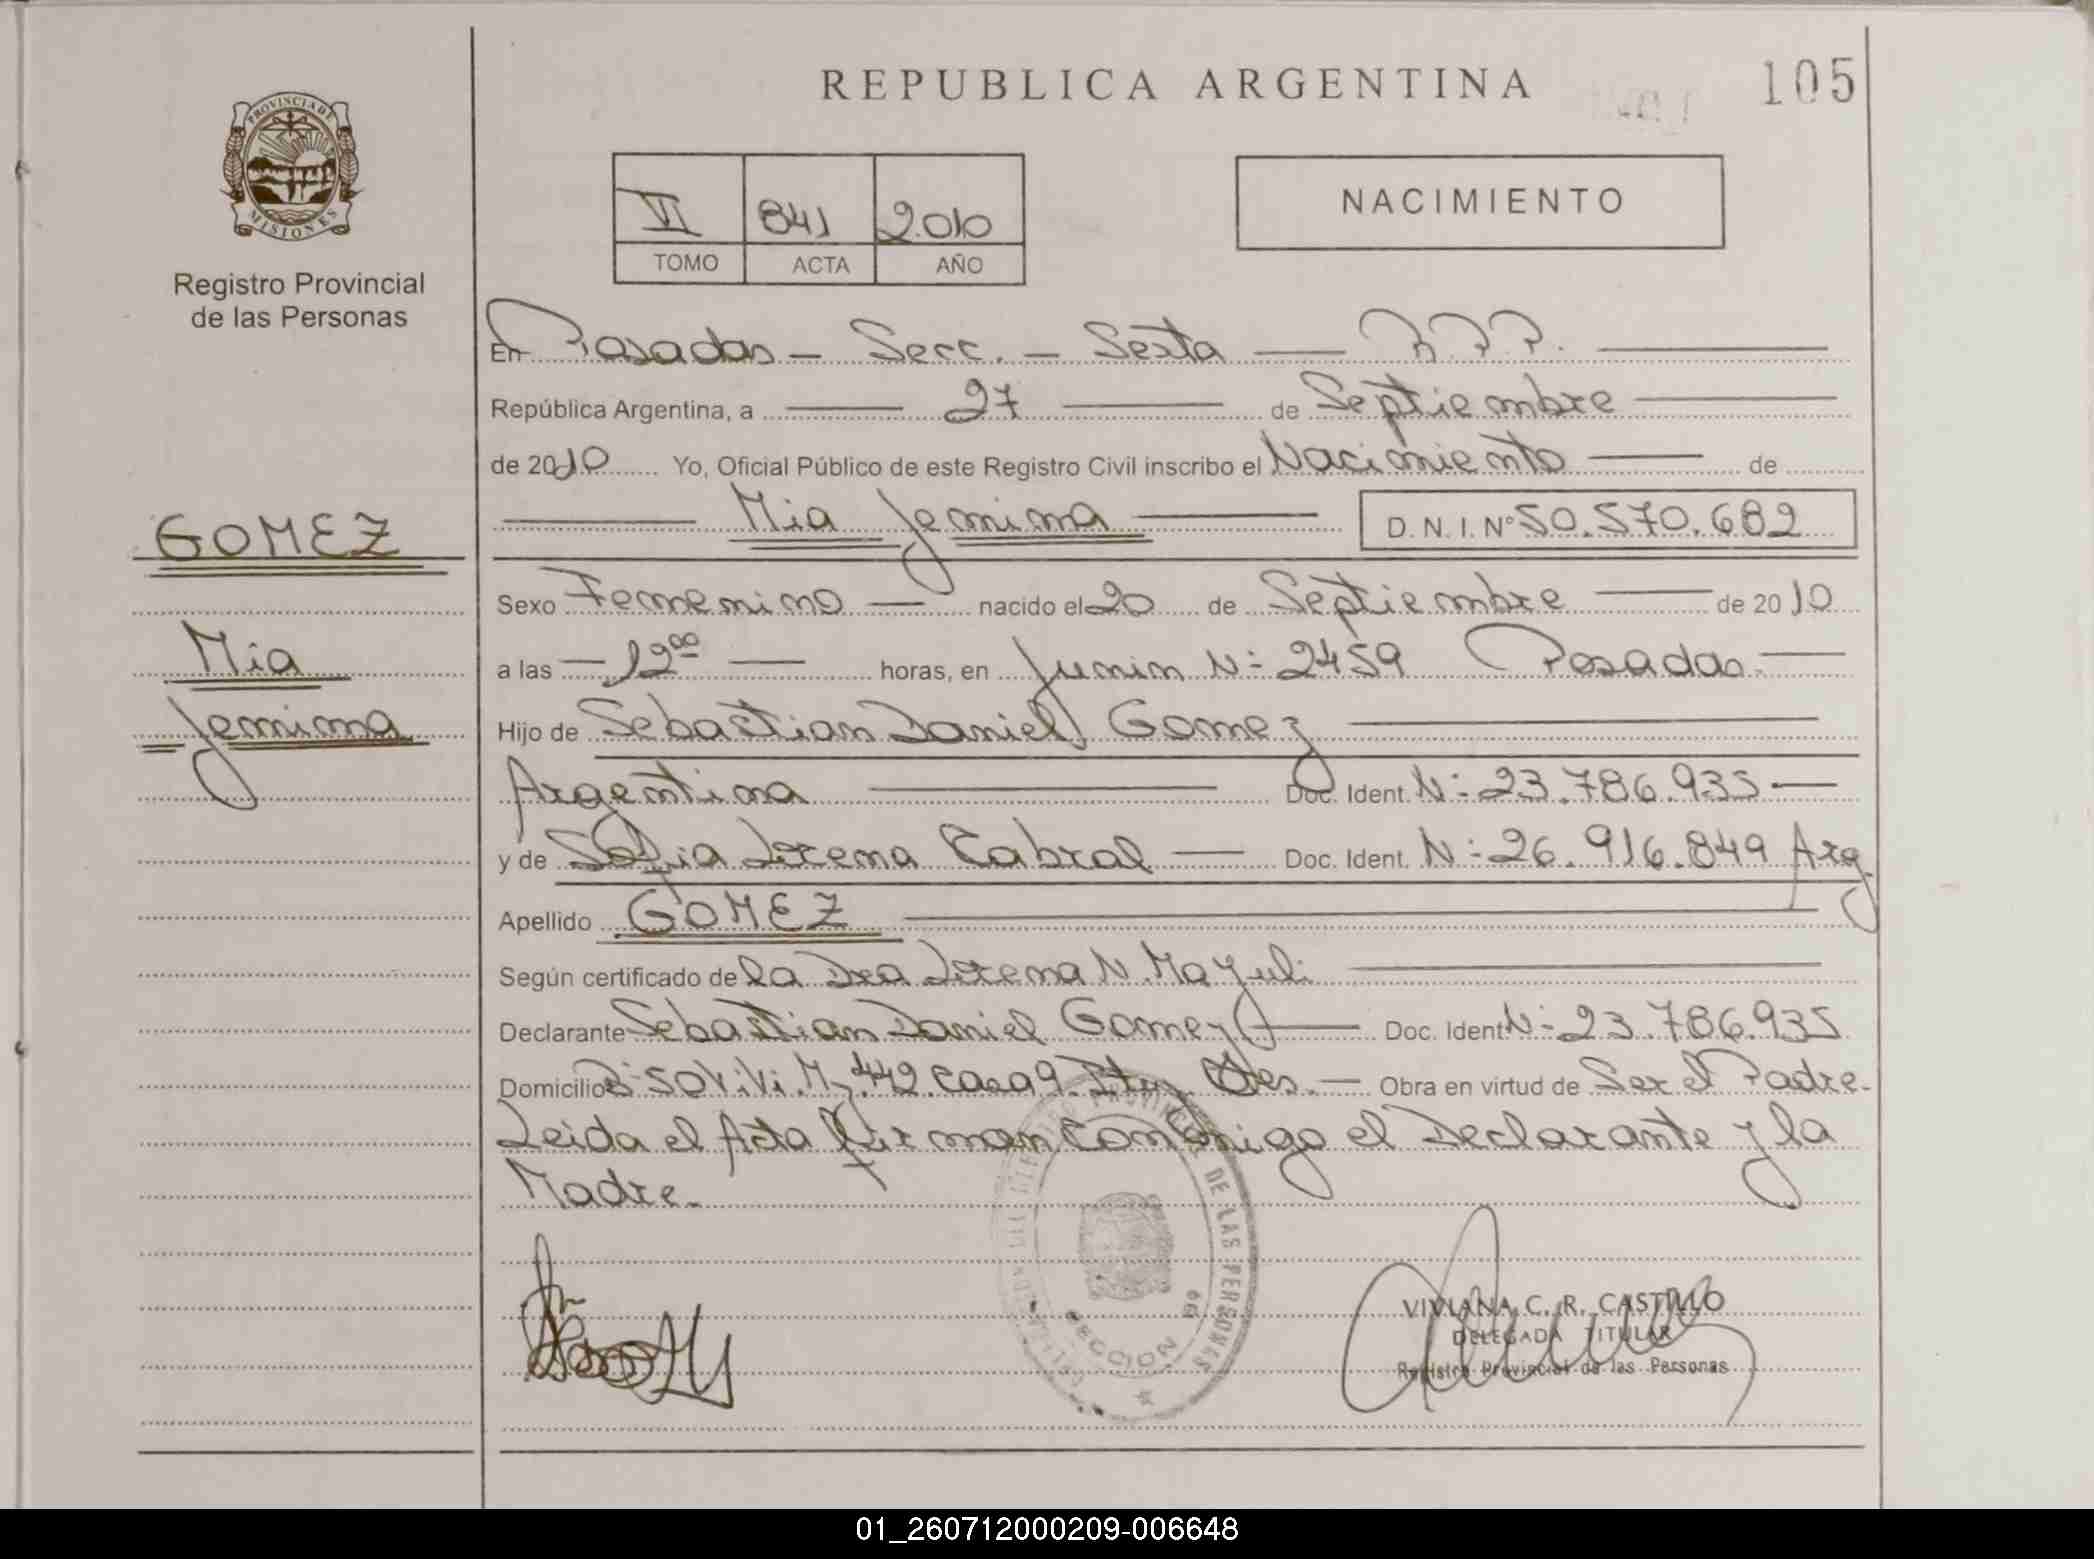 REPUBLICA ARGENTINA
105
PROVINCIA DE
MISIONES
Registro Provincial
de las Personas
VI 841 2010
TOMO ACTA AÑO
NACIMIENTO
En Posadas - Secc. - Sexta — R.P.P. —
República Argentina, a — 27 — de Septiembre —
de 2010 Yo, Oficial Público de este Registro Civil inscribo el Nacimiento — de
— Mia Jemima — D.N.I. Nº 50.570.682
GOMEZ
Mia
Jemima
Sexo Femenino — nacido el 20 de Septiembre — de 2010
a las — 12⁰⁰ — horas, en Junin Nº 2459 Posadas. —
Hijo de Sebastian Daniel Gomez —
Argentina — Doc. Ident. Nº 23.786.935 —
y de Sofia Lorena Cabral — Doc. Ident. Nº 26.916.849 Arg
Apellido GOMEZ —
Según certificado de la Dra Lorena N. Mayuli —
Declarante Sebastian Daniel Gomez — Doc. Ident Nº 23.786.935
Domicilio Bº SOV.iVi. Mz. 442. Casa 9. — Obra en virtud de Ser el Padre.
Leida el Acta firman Conmigo el Declarante y la
Madre.
DE LAS PERSONAS
SECCION
VIVIANA C. R. CASTILLO
DELEGADA TITULAR
Registro Provincial de las Personas
01_260712000209-006648